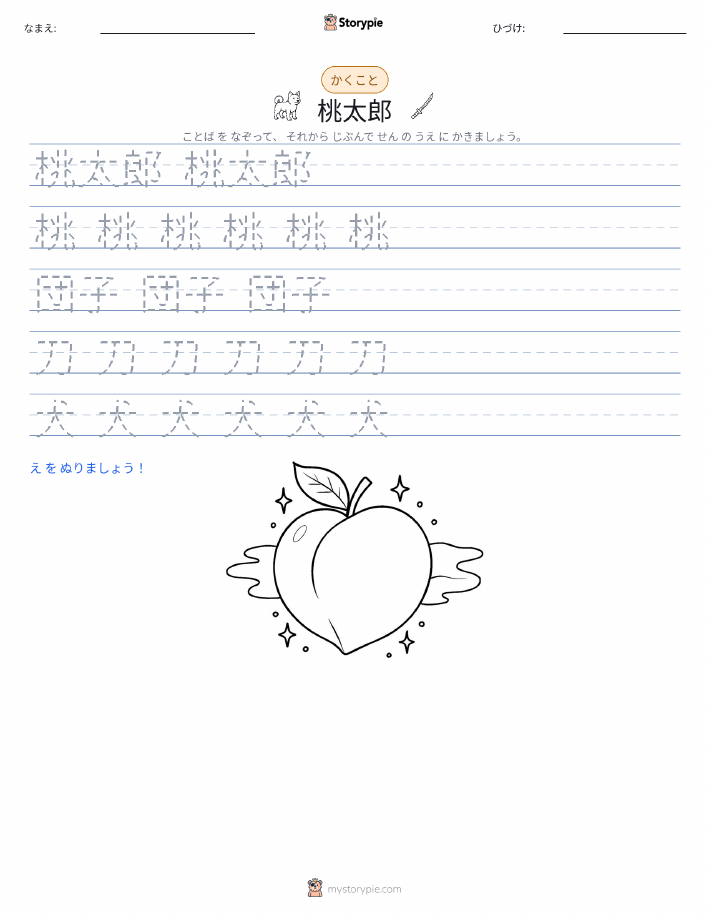 なまえ:
Storypie
ひづけ:
かくこと
桃太郎
ことば を なぞって、 それから じぶんで せん の うえ に かきましょう。
桃太郎 桃太郎
桃 桃 桃 桃 桃 桃
団子 団子 団子
刀 刀 刀 刀 刀 刀
犬 犬 犬 犬 犬 犬
え を ぬりましょう！
mystorypie.com